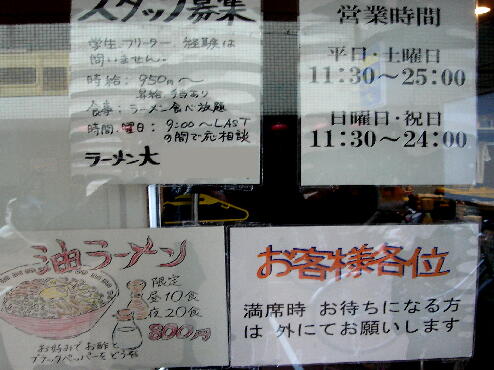 スタッフ募集
学生、フリーター、経験は
問いません。
時給：950円〜
昇給・手当あり
食事：ラーメン食べ放題
時間・曜日：9:00〜LAST
の間で応相談
ラーメン大
営業時間
平日・土曜日
11:30〜25:00
日曜日・祝日
11:30〜24:00
油ラーメン
限定
昼10食
夜20食
800円
お好みでお酢と
ブラックペッパーをどうぞ
お客様各位
満席時 お待ちになる方
は 外にてお願いします